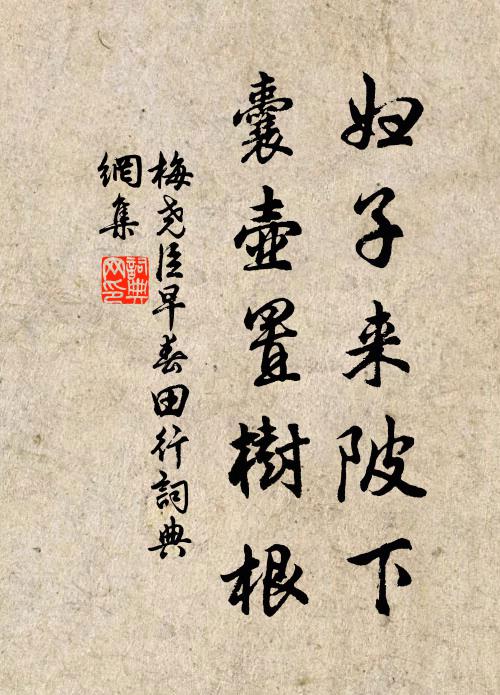 妇子来陂下
囊壶置樹根
梅尧臣早春田行詞典
網集
詞典
网印